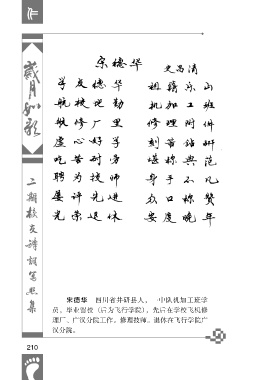 岁月如歌
二期校友诗词写照集
宋德华
史高清
学友德华 祖籍乐山
航校地勤 机加工班
航修厂里 修理附件
虚心好学 刻苦钻研
吃苦耐劳 堪称典范
聘为技师 身手不凡
屡评先进 众口称赞
光荣退休 安度晚年
宋德华 四川省井研县人，一中队机加工班学
员。毕业留校（后为飞行学院），先后在学校飞机修
理厂、广汉分院工作。修理技师。退休在飞行学院广
汉分院。
210